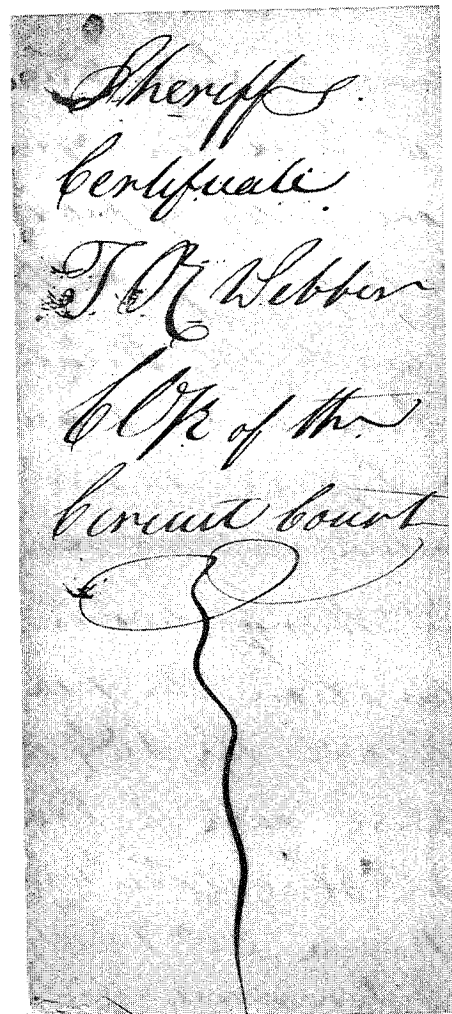 Sheriffs
Certificate
T R Webber
Clk of the
Circuit Court